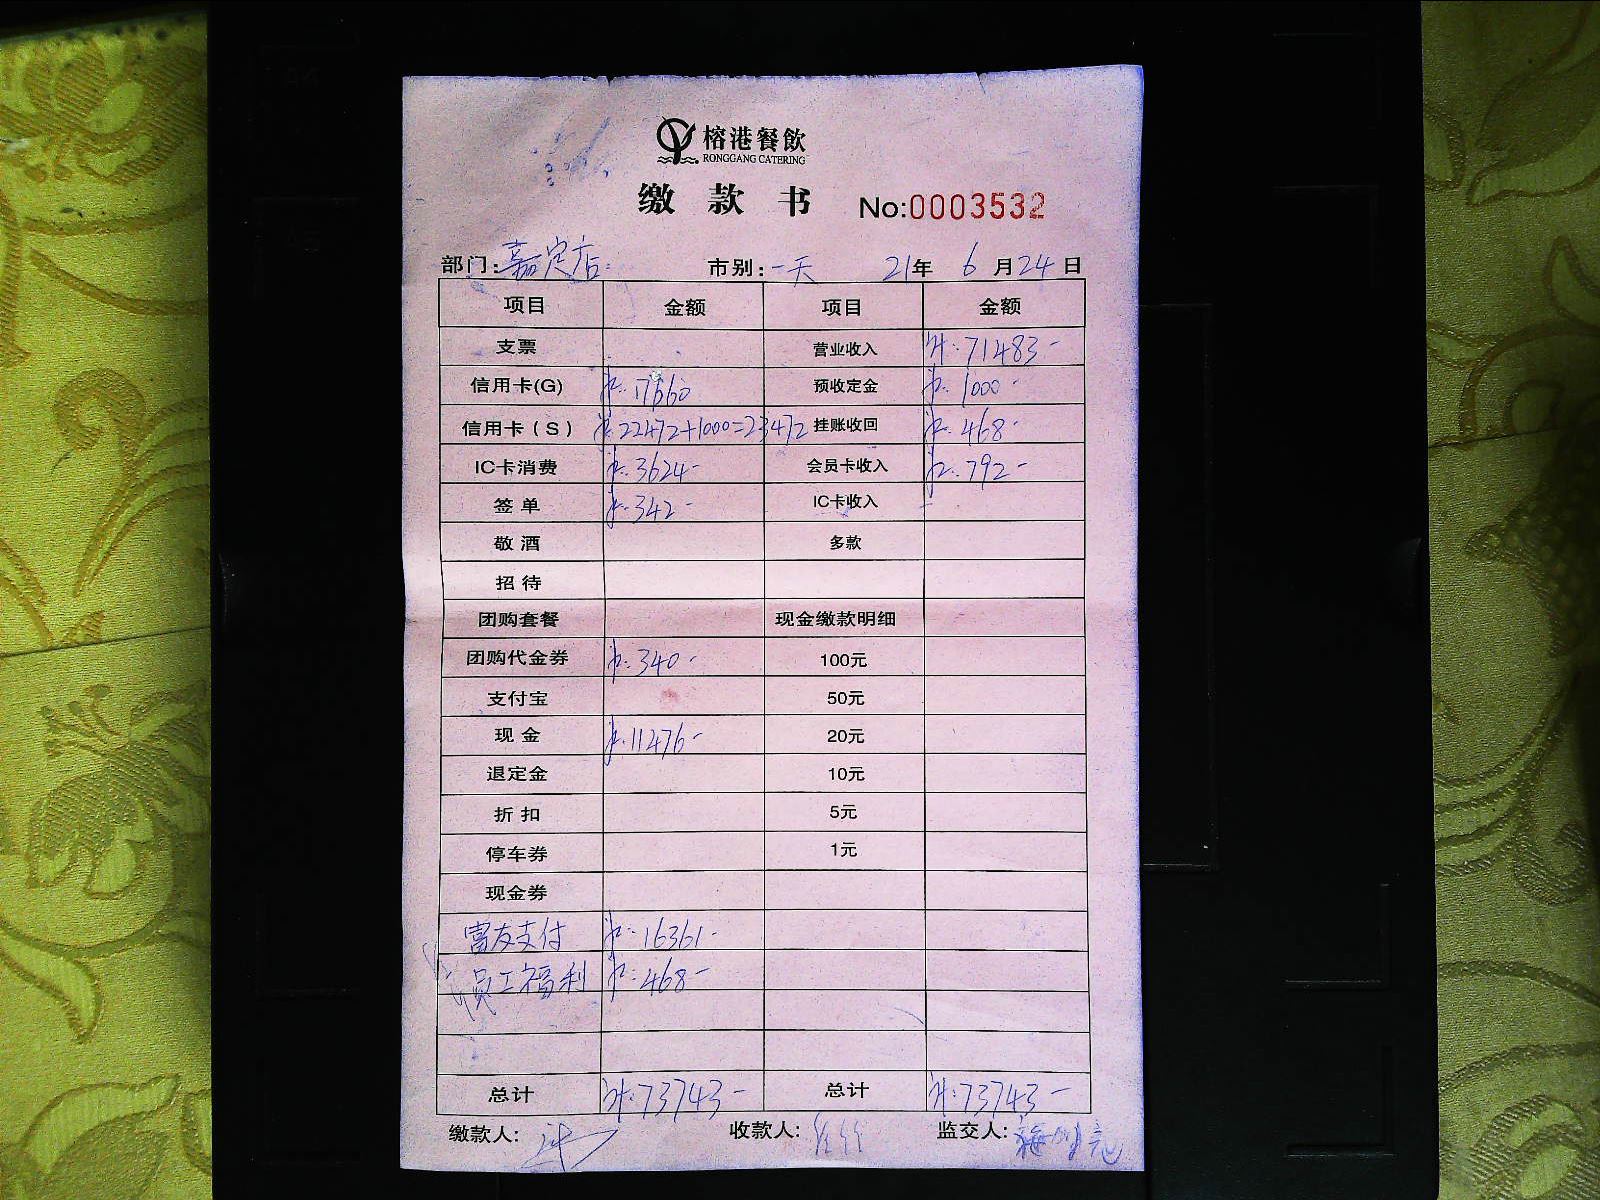 榕港餐飲
RONGGANG CATERING
缴款书 No:0003532
部门:嘉定店 市别:一天 21年6月24日
项目 金额 项目 金额
支票 营业收入 计:71483-
信用卡(G) 计:17660 预收定金 计:1000-
信用卡(S) 计:22472+1000=23472 挂账收回 计:468-
IC卡消费 计:3624- 会员卡收入 计:792-
签单 计:342- IC卡收入
敬酒 多款
招待
团购套餐 现金缴款明细
团购代金券 计:340- 100元
支付宝 50元
现金 计:11476- 20元
退定金 10元
折扣 5元
停车券 1元
现金券
富友支付 计:16361-
员工福利 计:468-
总计 计:73743- 总计 计:73743-
缴款人: 收款人: 监交人: